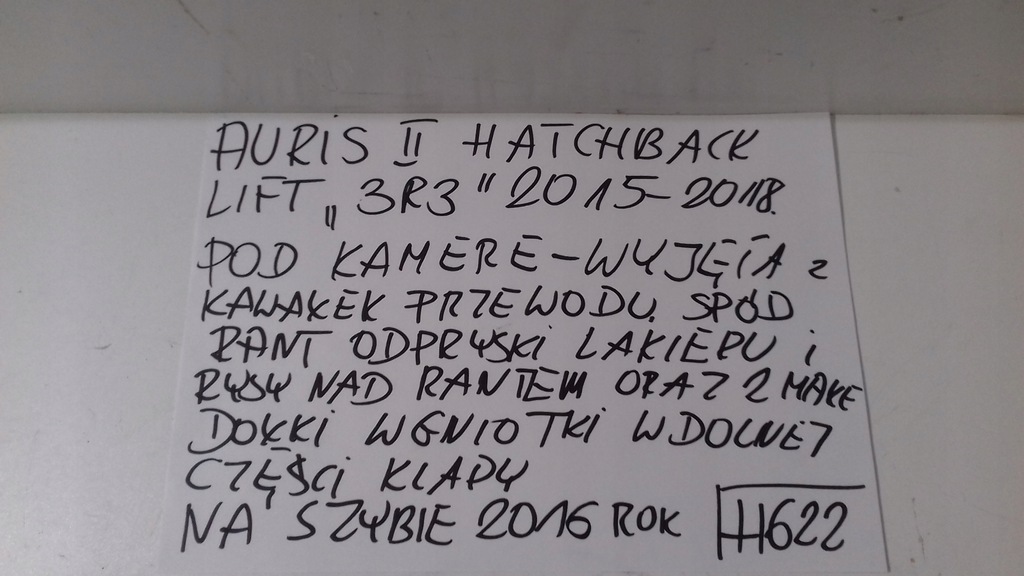 AURIS II HATCHBACK
LIFT „3R3" 2015-2018.
POD KAMERE - WYJĘTA 2
KAWAŁEK PRZEWODU. SPÓD
RANT ODPRYSKI LAKIERU i
RYSY NAD RANTEM ORAZ 2 MAŁE
DOŁKI WGNIOTKI W DOLNEJ
CZĘŚCI KLAPY
NA SZYBIE 2016 ROK H622